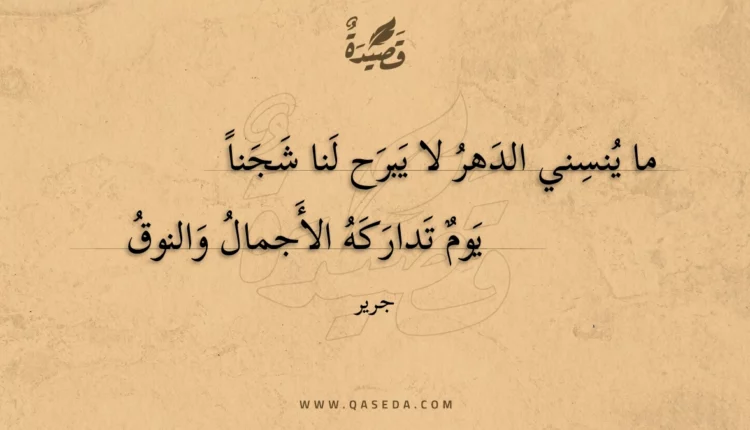 قَصِيدَةٌ
ما يُنسِني الدَهرُ لا يَبرَح لَنا شَجَناً
يَومٌ تَدارَكَهُ الأَجمالُ وَالنوقُ
جرير
WWW.QASEDA.COM